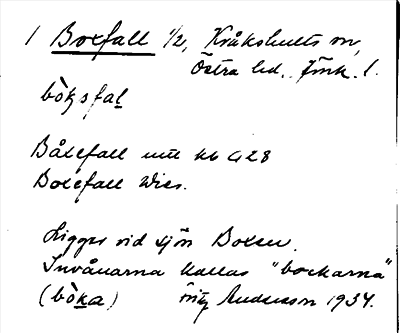 1 Boxfall 1/2, Kråkshults sn,
Östra hd. Jönk. l.
bòksfal
Båxefall
Boxefall Wies.
Ligger vid sjön Boxen.
Invånarna kallas "bockarna"
(bòka) Fritz Andersson 1934.